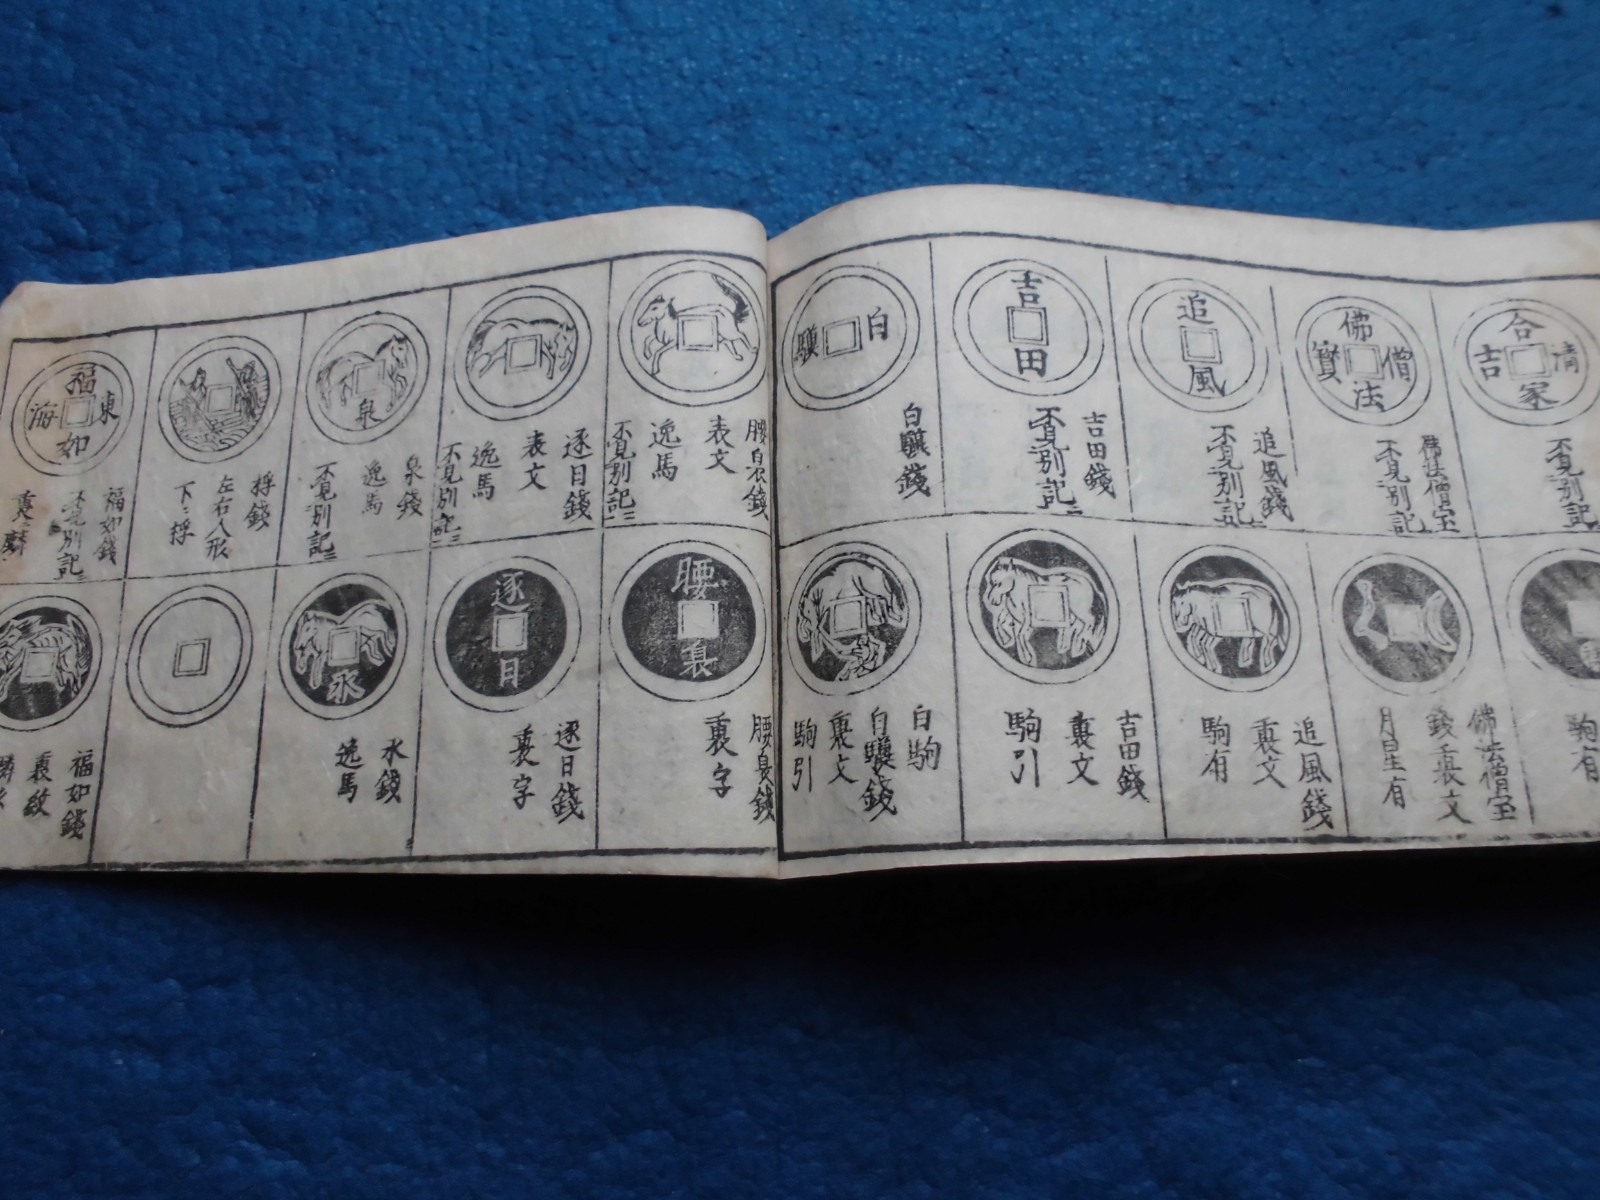 合家清吉
不見別記
佛法僧寳
佛法僧宝
不見別記
追風
追風錢
不見別記
吉田
吉田錢
不見別記
白驥
白驥錢
駒有
佛法僧宝
錢裏文
月星有
追風錢
裏文
駒有
吉田錢
裏文
駒引
白駒
白驥錢
裏文
駒引
腰裊錢
表文
逸馬
不見別記
逐日錢
表文
逸馬
不見別記
泉
泉錢
逸馬
不見別記
桴錢
左右人形
下ニ桴
福如東海
福如錢
不見別記
腰裊
腰裊錢
裏字
逐日
逐日錢
裏字
永
永錢
逸馬
福如錢
裏紋